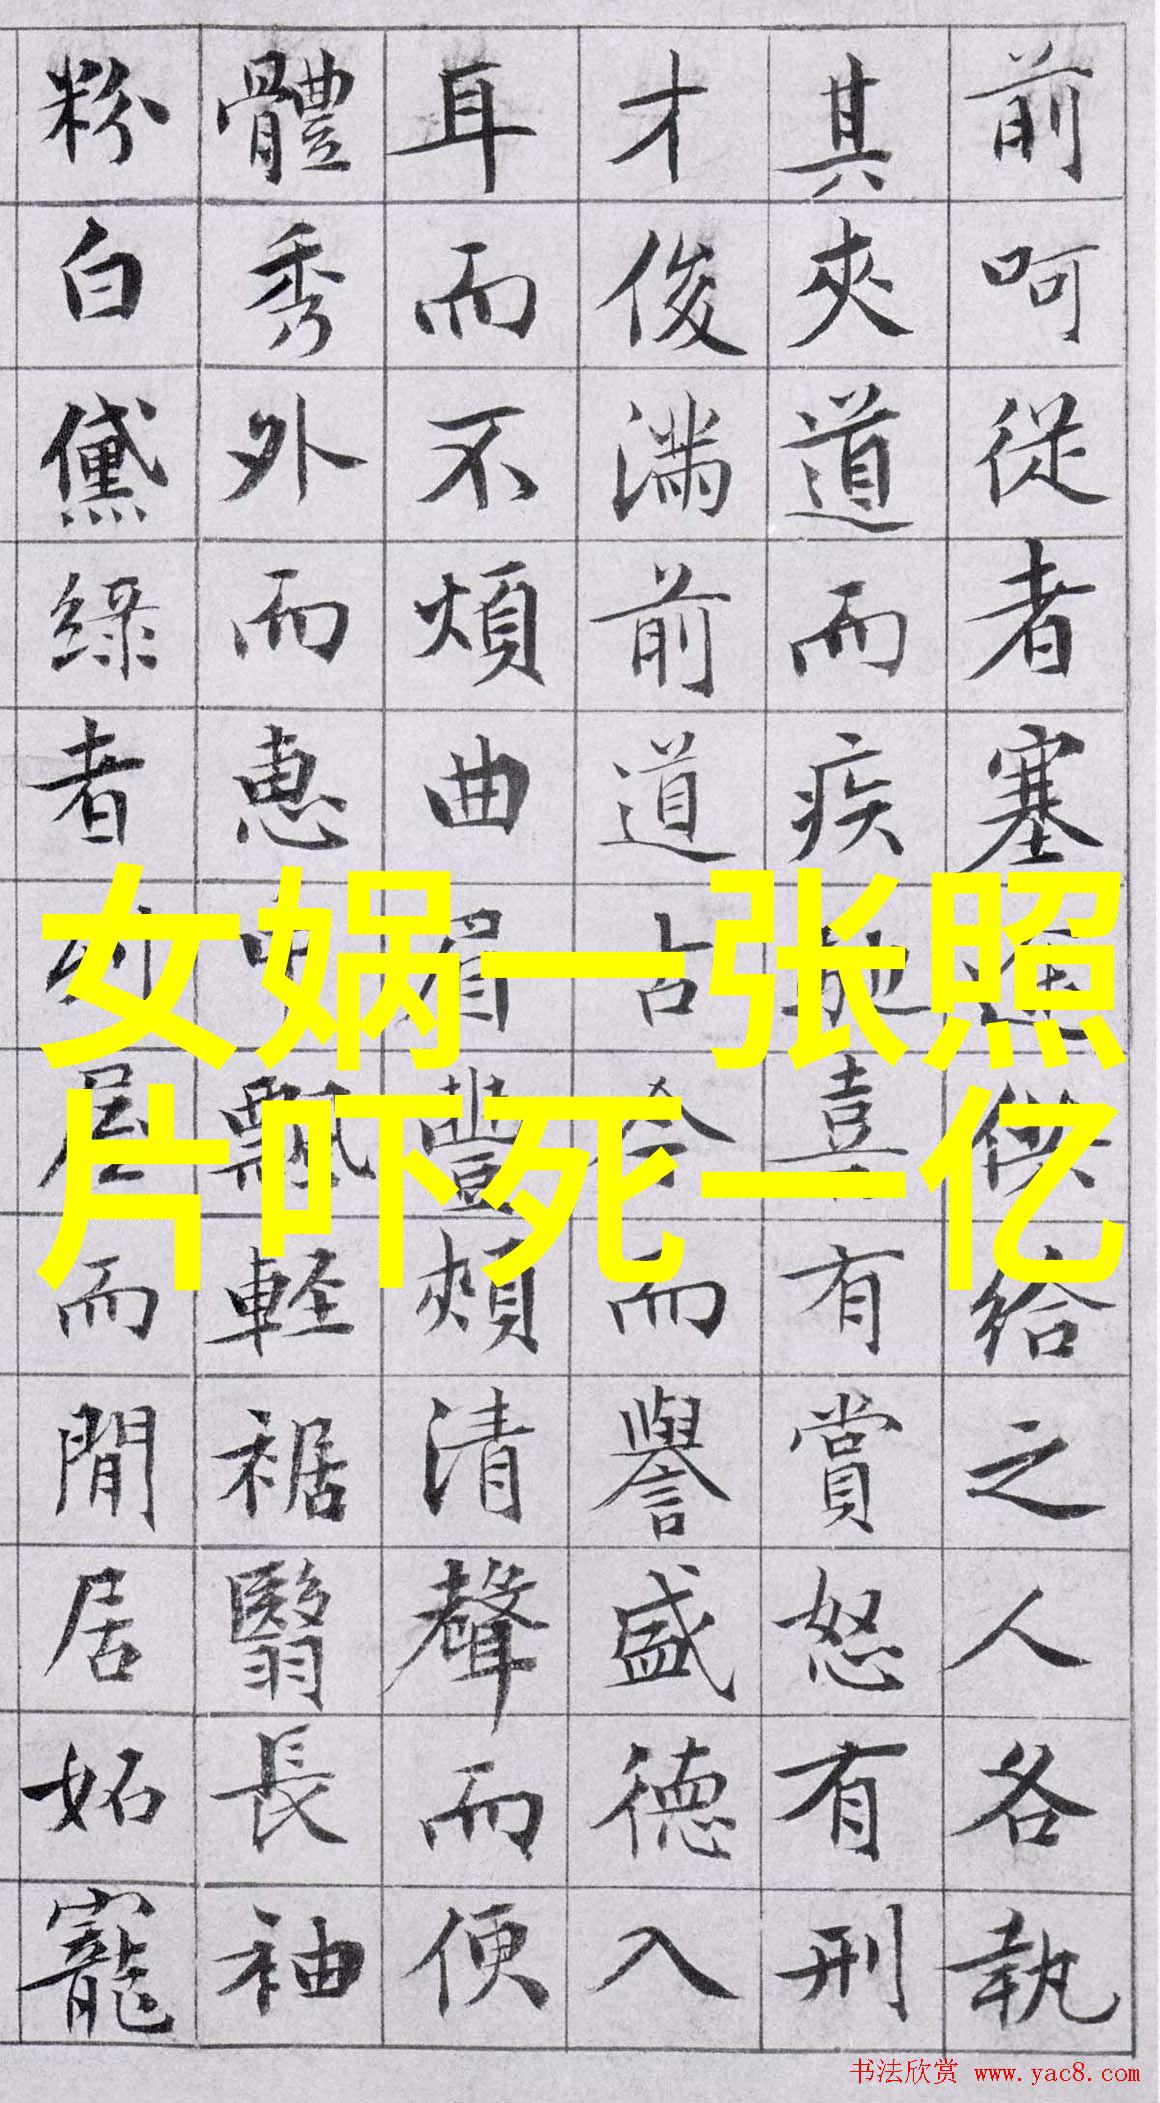 前呵從者塞途供給之人各執
其夾道而疾馳喜有賞怒有刑
才俊滿前道古今而譽盛德入
耳而不煩曲眉豐頰清聲而便
體秀外而惠中飄輕裾翳長袖
粉白黛綠者列屋而閒居妬寵
女娲一张照
片吓死一亿
书法欣赏 www.yac8.com